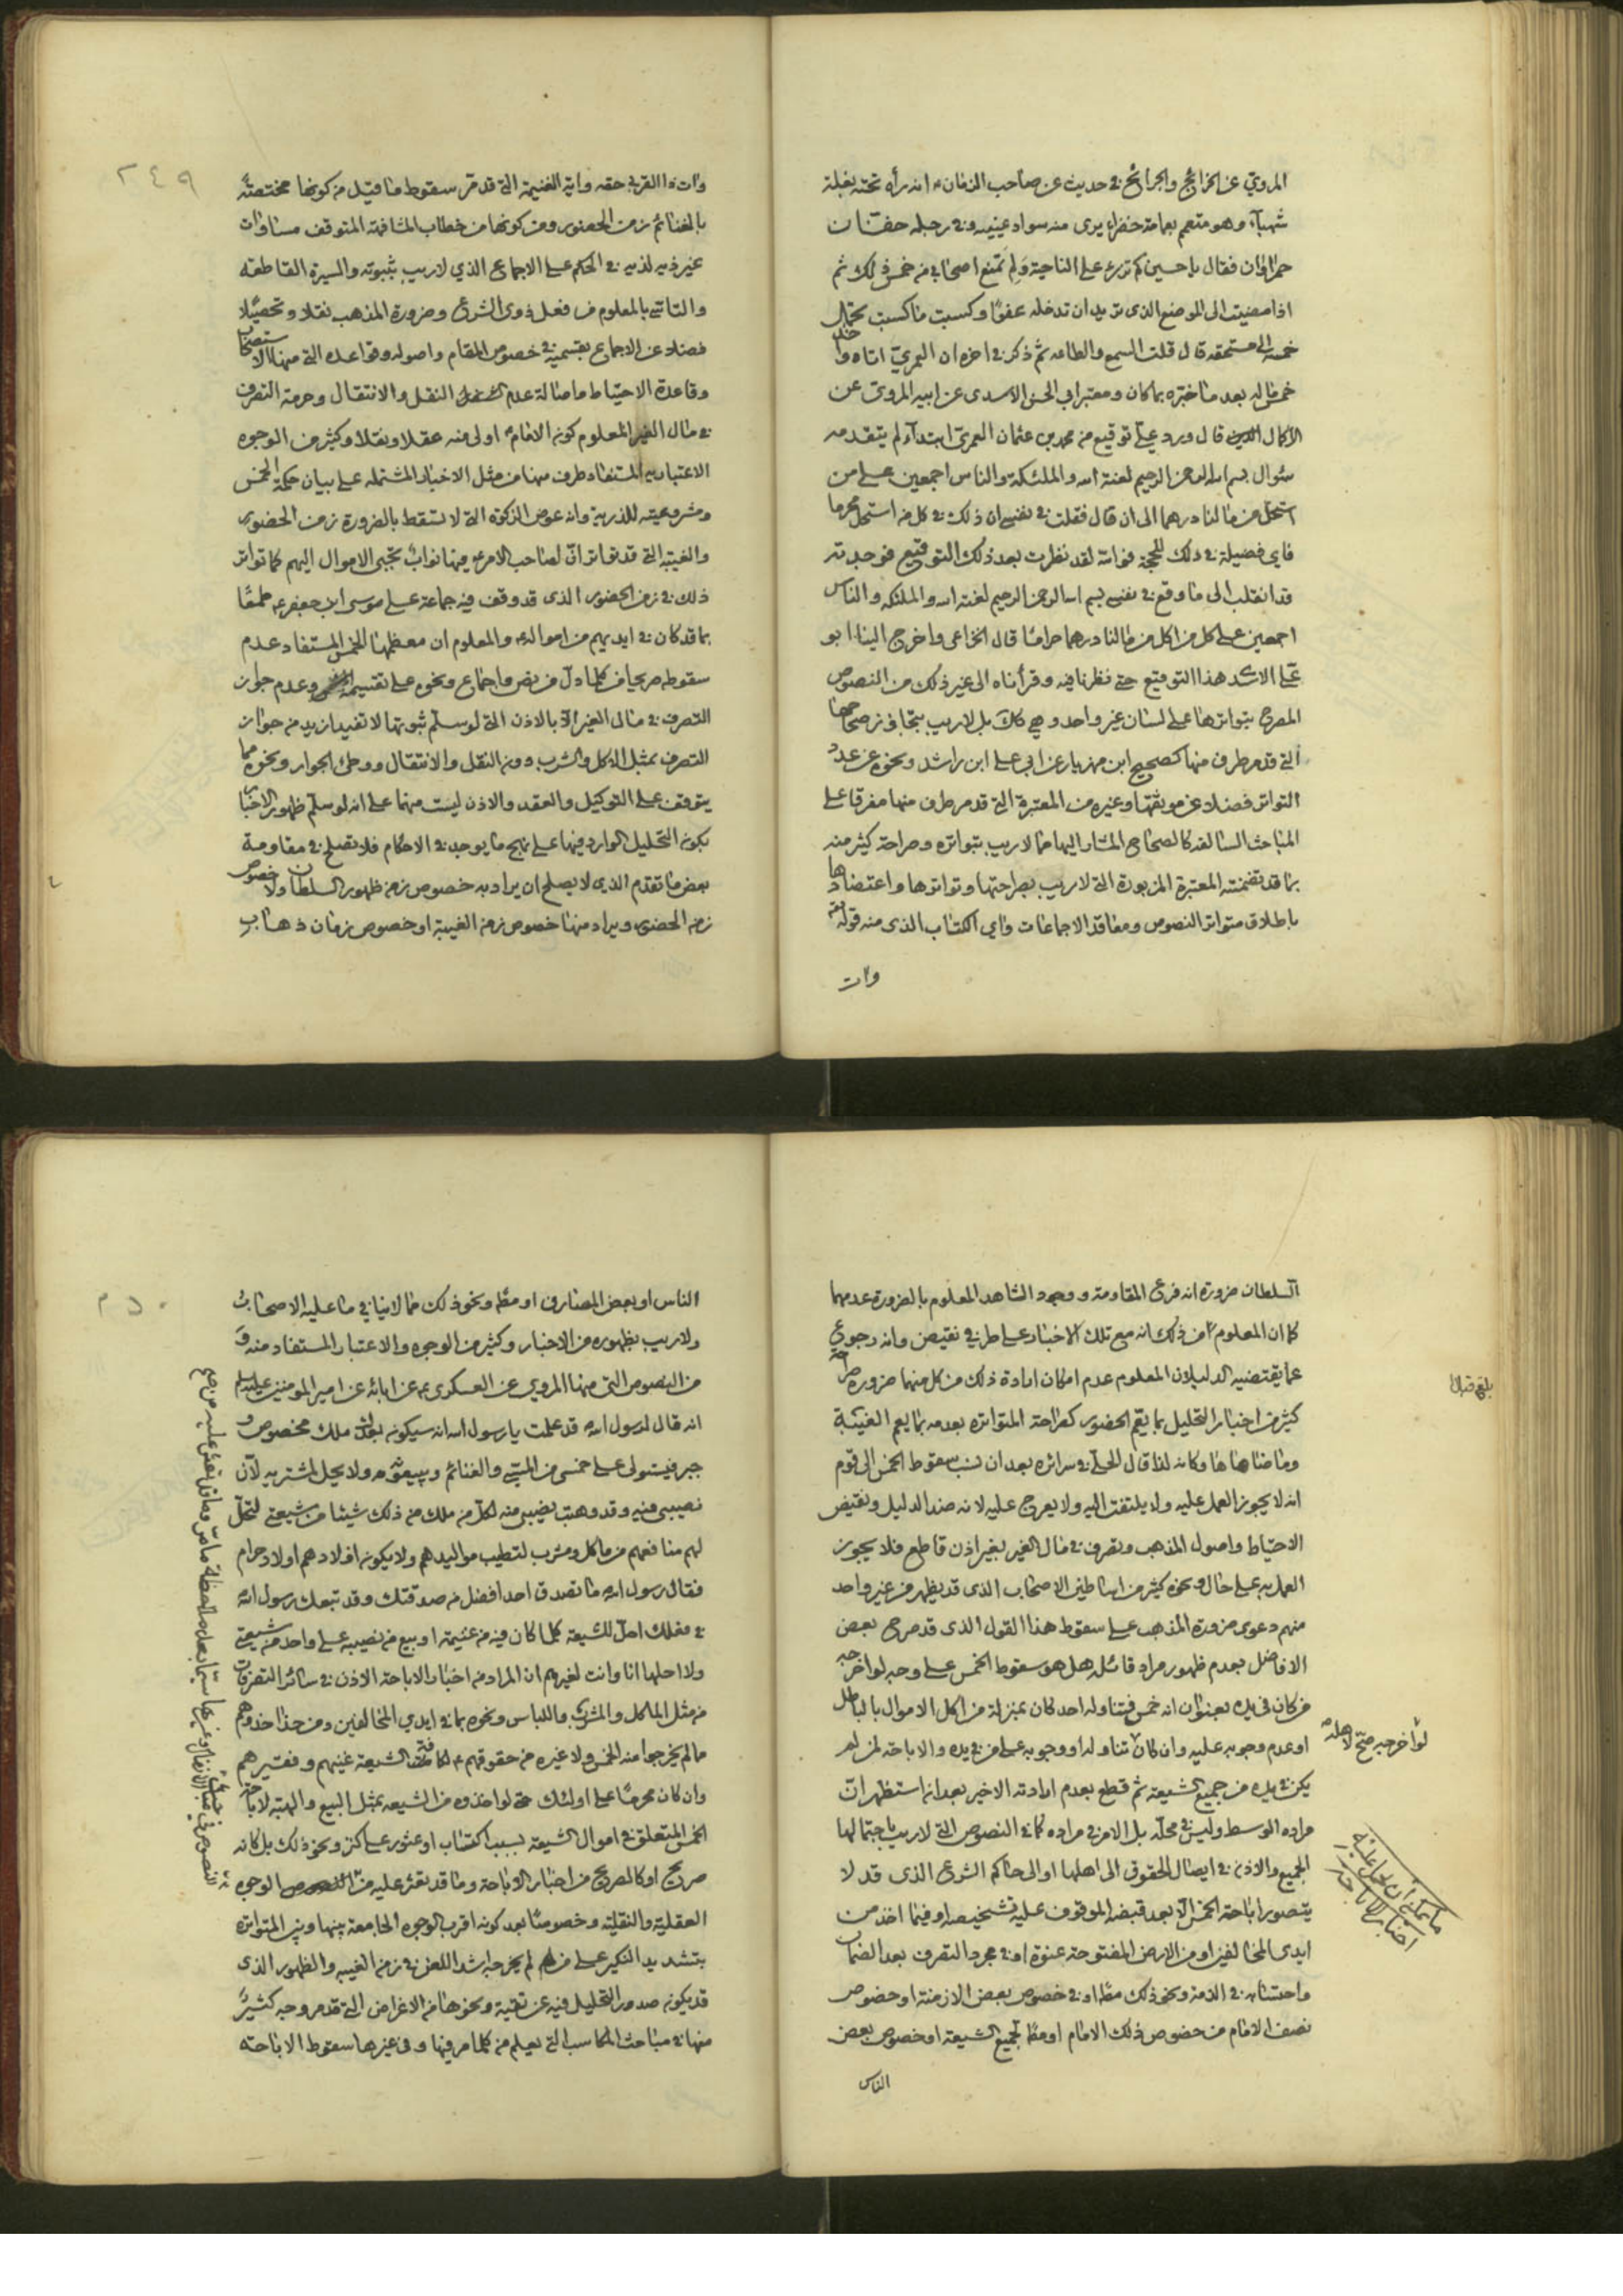 المروي عن الخرائج والجرائح في حديث عن صاحب الزمان ع انه رأه تحته بغلة
شهباء وهو متعمم بعمامة خضراء يرى منه سواد عينيه وفي رجله خفان
حمراوان فقال يا حسين كم تزرء على الناحية ولم تمنع اصحابي من خمس ذلك ثم
اذا مضيت الى الموضع الذى تريد ان تدخله عفوًا وكسبت ما كسبت تحمل
خمسه الى مستحقه قال قلت السمع والطاعه ثم ذكر في اخره ان العمري اتاه واخذ
خمس ماله بعد ما خبّره بما كان ومعتبر ابي الحسن الاسدى عن ابيه المروي عن
الاكمال قال ورد عليّ توقيع من محمد بن عثمان العمري ابتداء لم يتقدمه
سئوال بسم الله الرحمن الرحيم لعنة الله والملئكة والناس اجمعين على من
استحل من مالنا درهما الى ان قال فقلت في نفسي ان ذلك في كل من استحل محرما
فاي فضيلة في ذلك للحجة فوالله لقد نظرت بعد ذلك التوقيع فوجدته
قد انقلب الى ما وقع في نفسي بسم الله الرحمن الرحيم لعنة الله والملئكة والناس
اجمعين على كل من اكل من مالنا درهما حرامًا قال الخزاعي واخرج الينا ابو
علي الاسدى هذا التوقيع حتى نظرنا فيه وقرأناه الى غير ذلك من النصوص
المصرح بتواترها على لسان غير واحد وهي كك بل لا ريب بتجاوز صحاحها
التي قد مر طرف منها كصحيح ابن مهزيار عن ابي علي ابن راشد ونحوه عن عدد
التواتر فضلا عن موثقها وغيره من المعتبرة التي قد مر طرف منها مفرقا على
المباحث السالفه كالصحاح المشار اليها مما لا ريب بتواتره وصراحة كثير منه
بما قد تضمنته المعتبرة المزبورة التي لا ريب بصراحتها وتواترها واعتضادها
باطلاق متواتر النصوص ومعاقد الاجماعات واي الكتاب الذى منه قوله تعم
وات
٢٤٩
وات ذا القربى حقه واية الغنيمة التي قد مر سقوط ما قيل من كونها مختصة
بالغنائم زمن الحضور ومن كونها من خطاب المشافهة المتوقف مساوات
غير ذيه لذيه في الحكم على الاجماع الذي لا ريب بثبوته والسيرة القاطعه
والتاسي بالمعلوم من فعل ذوى الشرع وضرورة المذهب نقلا وتحصيلا
فضلا عن الاجماع بقسميه في خصوص المقام واصوله وقواعده التي منها الاستصحاب
وقاعدة الاحتياط واصالة عدم النقل والانتقال وحرمة التصرف
في مال الغير المعلوم كون الامام ع اولى منه عقلا ونقلا وكثير من الوجوه
الاعتباريه المستفاد طرف منها من مثل الاخبار المشتمله على بيان حكمة الخمس
ومشروعيته للذرية وانه عوض الزكوة التي لا تسقط بالضرورة زمن الحضور
والغيبة التي قد تواتر ان لصاحب الامر ع فيها نوابٌ تجبى الاموال اليهم كما تواتر
ذلك في زمن الحضور الذى قد وقف فيه جماعة على موسى ابن جعفر ع طمعًا
بما قد كان في ايديهم من امواله ع والمعلوم ان معظمها الخمس المستفاد عدم
سقوطه صريحا من كلما دل من نص واجماع ونحوه على تقسيمه وعدم جواز
التصرف في مال الغير الا بالاذن التي لو سلّم ثبوتها لا تفيد ازيد من جواز
التصرف بمثل الاكل والشرب دون النقل والانتقال ووطى الجوار ونحوه مما
يتوقف على التوكيل والعقد والاذن ليست منهما على انه لو سلم ظهور الاخبار
بكون التحليل الوارد فيها على نهج ما يوجد في الاحكام فلا تصلح في مقاومة
بعض ما تقدم الذى لا يصلح ان يراد به خصوص زمن ظهور السلطان ولا خصوص
زمن الحضور ويراد منها خصوص زمن الغيبة او خصوص زمان ذهاب
السلطان ضرورة انه فرع المقاومة ووجود الشاهد المعلوم بالضرورة عدمهما
كما ان المعلوم من ذلك انه مع تلك الاخبار على طرفي نقيض وانه رجوع
عما يقتضيه الدليلان المعلوم عدم امكان ارادة ذلك من كل منهما ضرورة صراحة
كثير من اخبار التحليل بما يعم الحضور كصراحة المتواتره بعدمه بما يعم الغيبة
وما ضاهاها وكانه لذا قال الحلي في سرائره بعد ان نسب سقوط الخمس الى قوم
انه لا يجوز العمل عليه ولا يلتفت اليه ولا يعرج عليه لانه ضد الدليل ونقيض
الاحتياط واصول المذهب وتصرف في مال الغير بغير اذن قاطع فلا يجوز
العمل به على حال ونحوه كثير من اساطين الاصحاب الذى قد يظهر من غير واحد
منهم دعوى ضرورة المذهب على سقوط هذا القول الذى قد صرح بعض
الافاضل بعدم ظهور مراد قائله هل هو سقوط الخمس على وجه لو اخرجه
من كان في يده بعنوان انه خمس فتناوله احد كان بمنزلة من اكل الاموال بالباطل
او عدم وجوبه عليه وان كان تناوله او وجوبه على من في يده والاباحة لمن لم
يكن في يده من جميع الشيعة ثم قطع بعدم ارادته الاخير بعد ان استظهر ان
مراده الوسط وليس في محلّه بل الامر في مراده كما في النصوص التي لا ريب باحتمالها
الجميع والاذن في ايصال الحقوق الى اهلها او الى حاكم الشرع الذى قد لا
يتصور اباحة الخمس الا بعد قبضه الموقوف عليه تشخيصه او فيما اخذ من
ايدى المخالفين او من الارض المفتوحة عنوة او في مجرد التصرف بعد الضمان
واحتسابه في الذمة ونحو ذلك مطلقا او في خصوص بعض الازمنة او خصوص
نصف الامام من خصوص ذلك الامام او مطلقا لجميع الشيعة او خصوص بعض
الناس
بلغ قبالا
لو اخرجه صح لاهله
ما يمكن ان يحمل عليه
اخبار الاباحة
الناس او بعض المصارف او مطلقا ونحو ذلك مما لا ينافي ما عليه الاصحاب
ولا ريب بظهوره من الاخبار وكثير من الوجوه والاعتبار المستفاد منه و
من النصوص التي منها المروي عن العسكرى ع عن ابائه عن امير المومنين عليه السلم
انه قال لرسول الله قد علمت يا رسول الله انه سيكون بعدك ملك مخصوص و
جبر فيستولى على خمسي من السبي والغنائم ويبيعونه ولا يحل لمشتريه لان
نصيبي فيه وقد وهبت نصيبي منه لكل من ملك من ذلك شيئا من شيعتي لتحل
لهم منافعهم من ماكل ومشرب لتطيب مواليدهم ولا يكون اولادهم اولاد حرام
فقال رسول الله ما تصدق احد افضل من صدقتك وقد تبعك رسول الله
في فعلك احل للشيعة كلما كان فيه من غنيمة او بيع من نصيبه على واحد من شيعتي
ولا احلها انا وانت لغيرهم ان المراد من اخبار الاباحة الاذن في سائر التصرفات
من مثل الماكل والمشرب واللباس ونحوه بما في ايدي المخالفين ومن حذا حذوهم
ما لم يخرجوا منه الخمس ولا غيره من حقوقهم ع لكافة الشيعة غنيهم وفقيرهم
وان كان محرمًا على اولئك حتى لو اخذوه من الشيعه بمثل البيع والهبة لا اباحة
الخمس المتعلق في اموال الشيعة بسبب اكتساب او عثور على كنز ونحو ذلك بل كانه
صريح او كالصريح من اخبار الاباحة وما قد تعثر عليه من الوجوه
العقلية والنقليه وخصوصًا بعد كونه اقرب الوجوه الجامعة بينها وبين المتواتره
بتشديد النكير على من لم يخرجه اشد اللعن في زمن الغيبه والظهور الذى
قد يكون صدور التحليل فيه عن تقية ونحوها من الاغراض التي قد مر وجه كثير
منها في مباحث المكاسب التي يعلم من كلما مر فيها وفي غيرها سقوط الاباحة